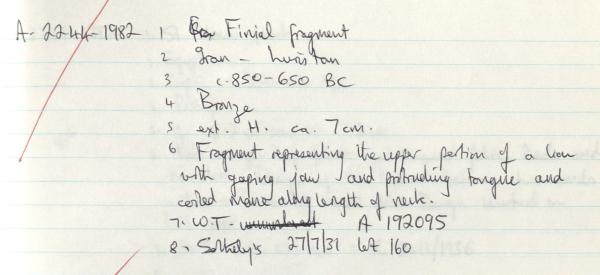 A-2244-1982 1 Finial fragment
2 Iran - Luristan
3 c.850-650 BC
4 Bronze
5 ext. H. ca. 7cm.
6 Fragment representing the upper portion of a lion
with gaping jaw and protruding tongue and
coiled mane along length of neck.
7. W.T- A 192095
8 - Sotheby's 27/7/31 lot 160